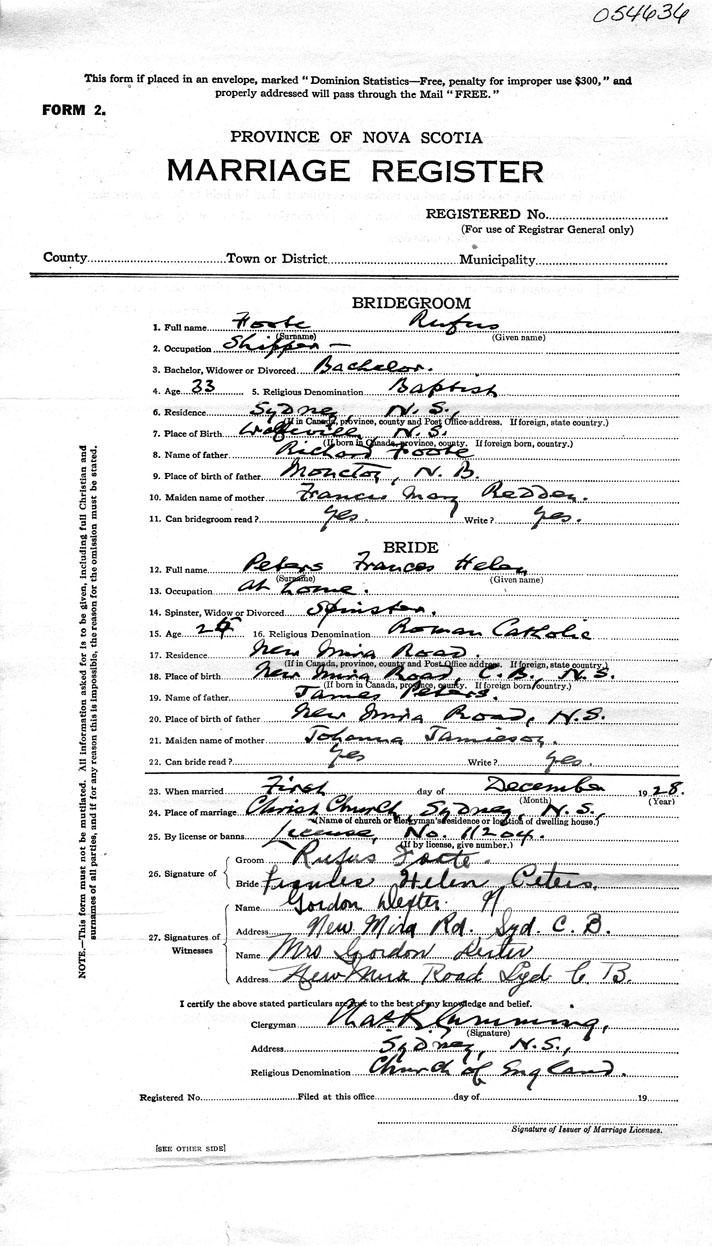 054636
This form if placed in an envelope, marked "Dominion Statistics—Free, penalty for improper use $300," and
properly addressed will pass through the Mail "FREE."
FORM 2.
PROVINCE OF NOVA SCOTIA
MARRIAGE REGISTER
REGISTERED No.
(For use of Registrar General only)
County Town or District Municipality
BRIDEGROOM
1. Full name Foote Rufus
(Surname) (Given name)
2. Occupation Shipper —
3. Bachelor, Widower or Divorced Bachelor.
4. Age 33 5. Religious Denomination Baptist
6. Residence Sydney N.S.,
(If in Canada, province, county and Post Office address. If foreign, state country.)
7. Place of Birth Wolfville N.S.
(If born in Canada, province, county. If foreign born, country.)
8. Name of father Richard Foote
9. Place of birth of father Moncton, N.B.
10. Maiden name of mother Francis Mary Redden.
11. Can bridegroom read? Yes. Write? Yes.
BRIDE
12. Full name Peters Frances Helen
(Surname) (Given name)
13. Occupation At home.
14. Spinster, Widow or Divorced Spinster.
15. Age 16. Religious Denomination Roman Catholic
17. Residence New Mira Road.
(If in Canada, province, county and Post Office address. If foreign, state country.)
18. Place of birth New Mira Road, C.B., N.S.
(If born in Canada, province, county. If foreign born, country.)
19. Name of father James Peters.
20. Place of birth of father New Mira Road, N.S.
21. Maiden name of mother Johanna Jamieson.
22. Can bride read? Yes Write? Yes.
23. When married First day of December 1928.
(Month) (Year)
24. Place of marriage Christ Church, Sydney, N.S.,
(Name of church or clergyman's residence or location of dwelling house.)
25. By license or banns License, No. 11204.
(If by license, give number.)
26. Signature of
Groom Rufus Foote.
Bride Helen Peters.
27. Signatures of Witnesses
Name Gordon
Address New Mira Rd. Syd. C.B.
Name Mrs Gordon
Address New Mira Road Syd C B.
I certify the above stated particulars are true to the best of my knowledge and belief.
Clergyman Cumming,
(Signature)
Address Sydney, N.S.,
Religious Denomination Church of England.
Registered No. Filed at this office day of 19
Signature of Issuer of Marriage Licenses.
[SEE OTHER SIDE]
NOTE.—This form must not be mutilated. All information asked for is to be given, including full Christian and
surnames of all parties, and if for any reason this is impossible, the reason for the omission must be stated.